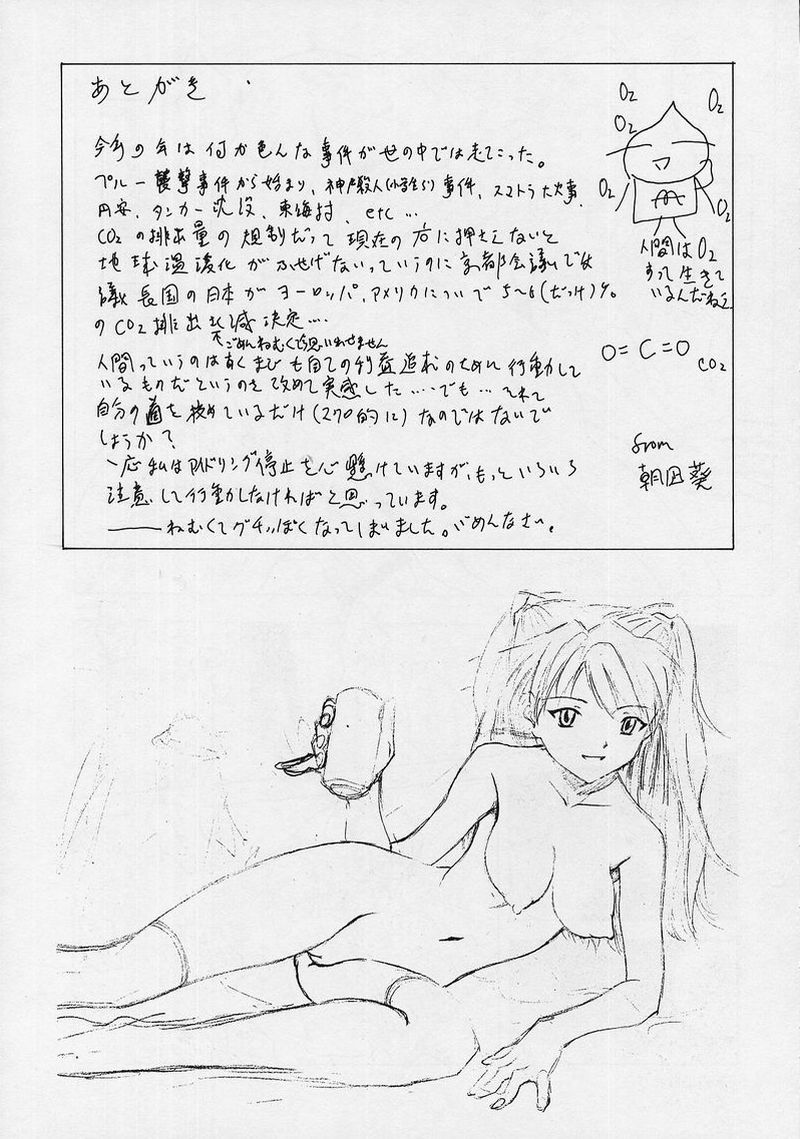 あとがき
今年の年は何か色んな事件が世の中では起こった。
ペルー襲撃事件から始まり、神戸殺人(小学生)事件、スマトラ大火事、
円安、タンカー沈没、東海村、etc…
CO2の排出量の規制だって現在の 押さえないと
地球温暖化がふせげないっていうのに京都会議では
議長国の日本がヨーロッパ、アメリカについで5〜6(だっけ)%。
のCO2排出 減決定…
ごめんねむくて思い出せません
人間っていうのは あくまでも自 の利益追求のために行動して
いるものだというのを改めて実感した…でも… それって
自分の首を絞めているだけ( 的に)なのではないで
しょうか?
一応私はアイドリング停止を心懸けていますが、もっといろいろ
注意して行動しなければと思っています。
――ねむくてグチっぽくなってしまいました。ごめんなさい。
O2
O2
O2
O2
O2
人間はO2
すって生きて
いるんだねぇ
O=C=O
CO2
from
朝凪葵